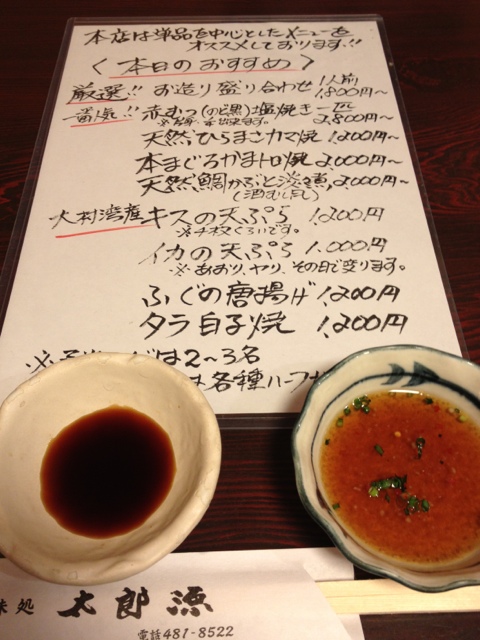 本店は単品を中心としたメニューを
オススメしております!!
〈本日のおすすめ〉
厳選!! お造り盛り合わせ 1人前 1,800円～
一番魚!! 赤むつ(のど黒)塩焼き 一匹 2,800円～
天然ひらまさカマ焼 1,200円～
本まぐろかまトロ焼 2,000円～
天然鯛かぶと淡煮 2,000円～
(酒むし可)
大村湾産キスの天ぷら 1,200円
イカの天ぷら 1,000円
※あおり、ヤリ、その日で変ります。
ふぐの唐揚げ 1,200円
タラ白子焼 1,200円
は2～3名
各種ハーフ
味処 太郎源
電話481-8522